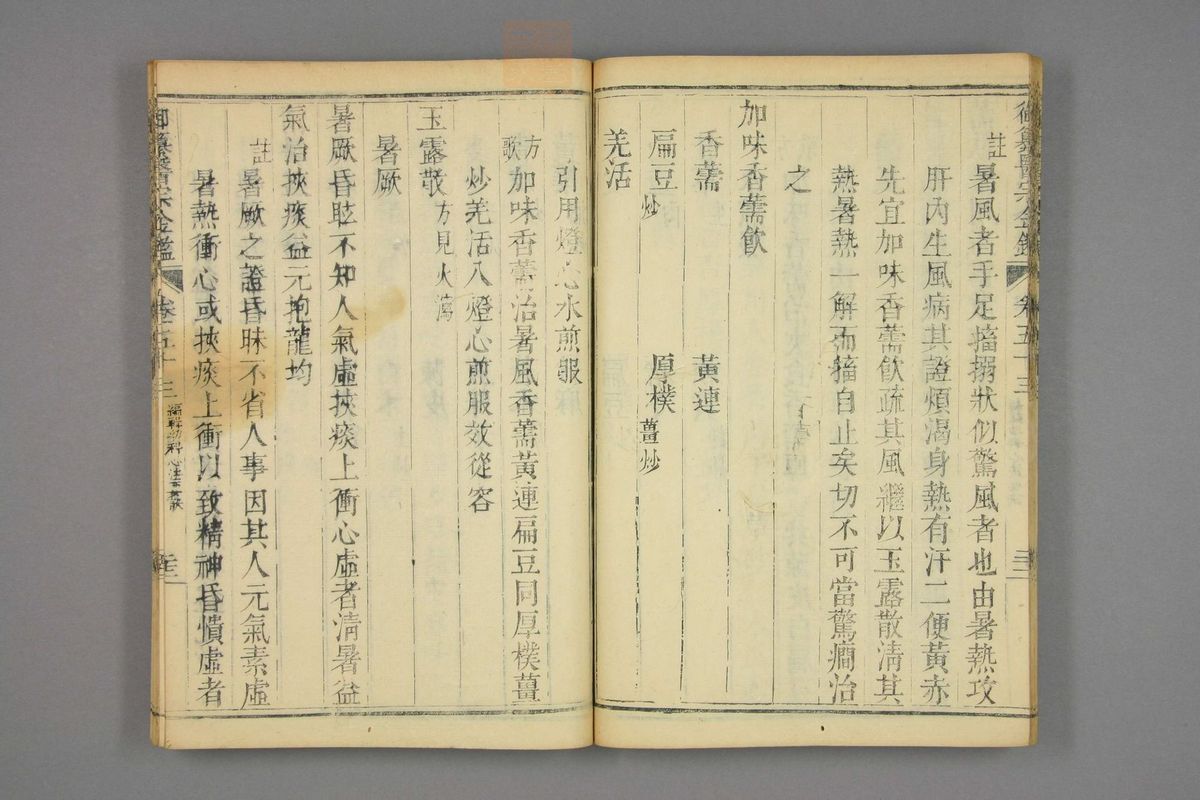 御纂醫宗金鑑 卷五十三
註 暑風者手足搐搦狀似驚風者也由暑熱攻
肝內生風病其證煩渴身熱有汗二便黃赤
先宜加味香薷飲疏其風繼以玉露散清其
熱暑熱一解而搐自止矣切不可當驚癇治
之
加味香薷飲
香薷 黃連
扁豆炒 厚樸薑炒
羌活
引用燈心水煎服
方歌 加味香薷治暑風香薷黃連扁豆同厚樸薑
炒羌活入燈心煎服效從容
玉露散方見火瀉
暑厥
暑厥昏眩不知人氣虛挾痰上衝心虛者淸暑益
氣治挾痰益元抱龍均
註 暑厥之證昏昧不省人事因其人元氣素虛
暑熱衝心或挾痰上衝以致精神昏憒虛者
御纂醫宗金鑑 卷五十三 編輯幼科心法要訣